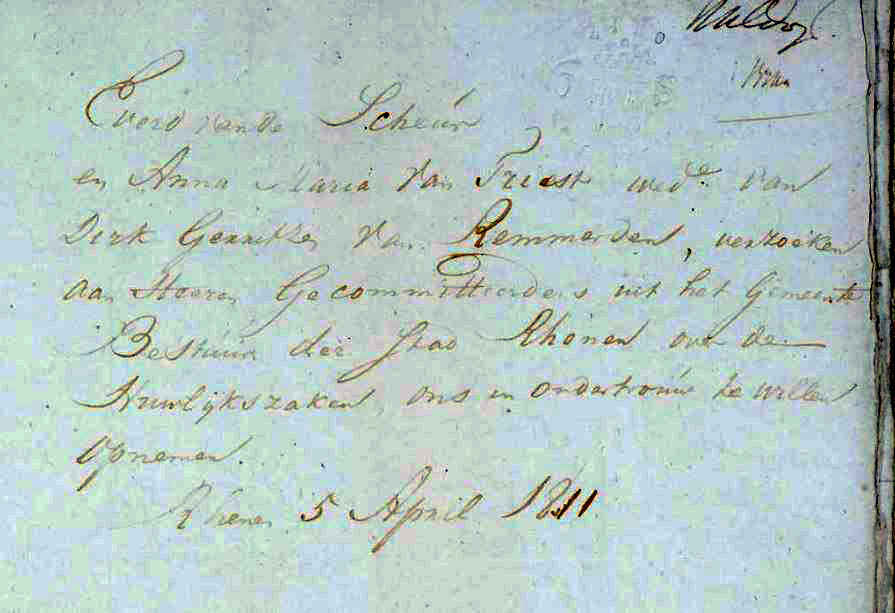 Everd van de Scheur
en Anna Maria van Triest wede van
Dirk Gerritzen van Remmerden, verzoeken
aan Heeren Gecommitteerdens uit het Gemeente
Bestuur der Stad Rhenen over de
Huwlijkszaken, ons in ondertrouw te willen
opnemen.
Rhenen 5 April 1811